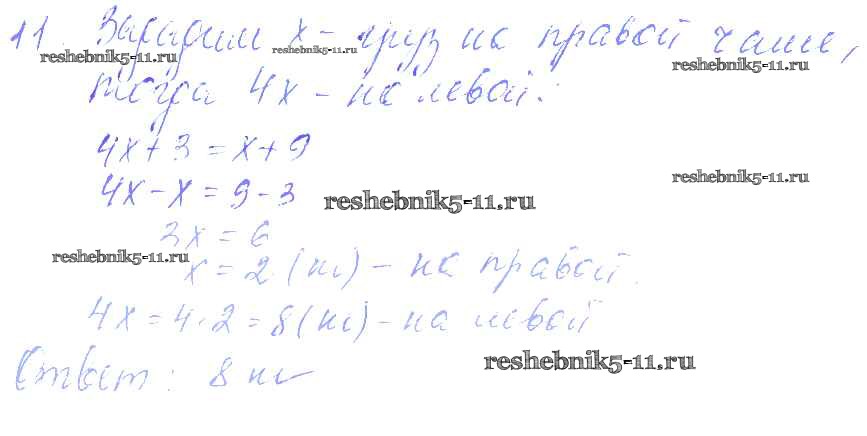 11. Зададим x - груз на правой чаше,
reshebnik5-11.ru reshebnik5-11.ru reshebnik5-11.ru
тогда 4x - на левой.
4x + 3 = x + 9
4x - x = 9 - 3
reshebnik5-11.ru reshebnik5-11.ru
3x = 6
reshebnik5-11.ru
x = 2 (кг) - на правой.
4x = 4 · 2 = 8 (кг) - на левой
reshebnik5-11.ru
Ответ: 8 кг